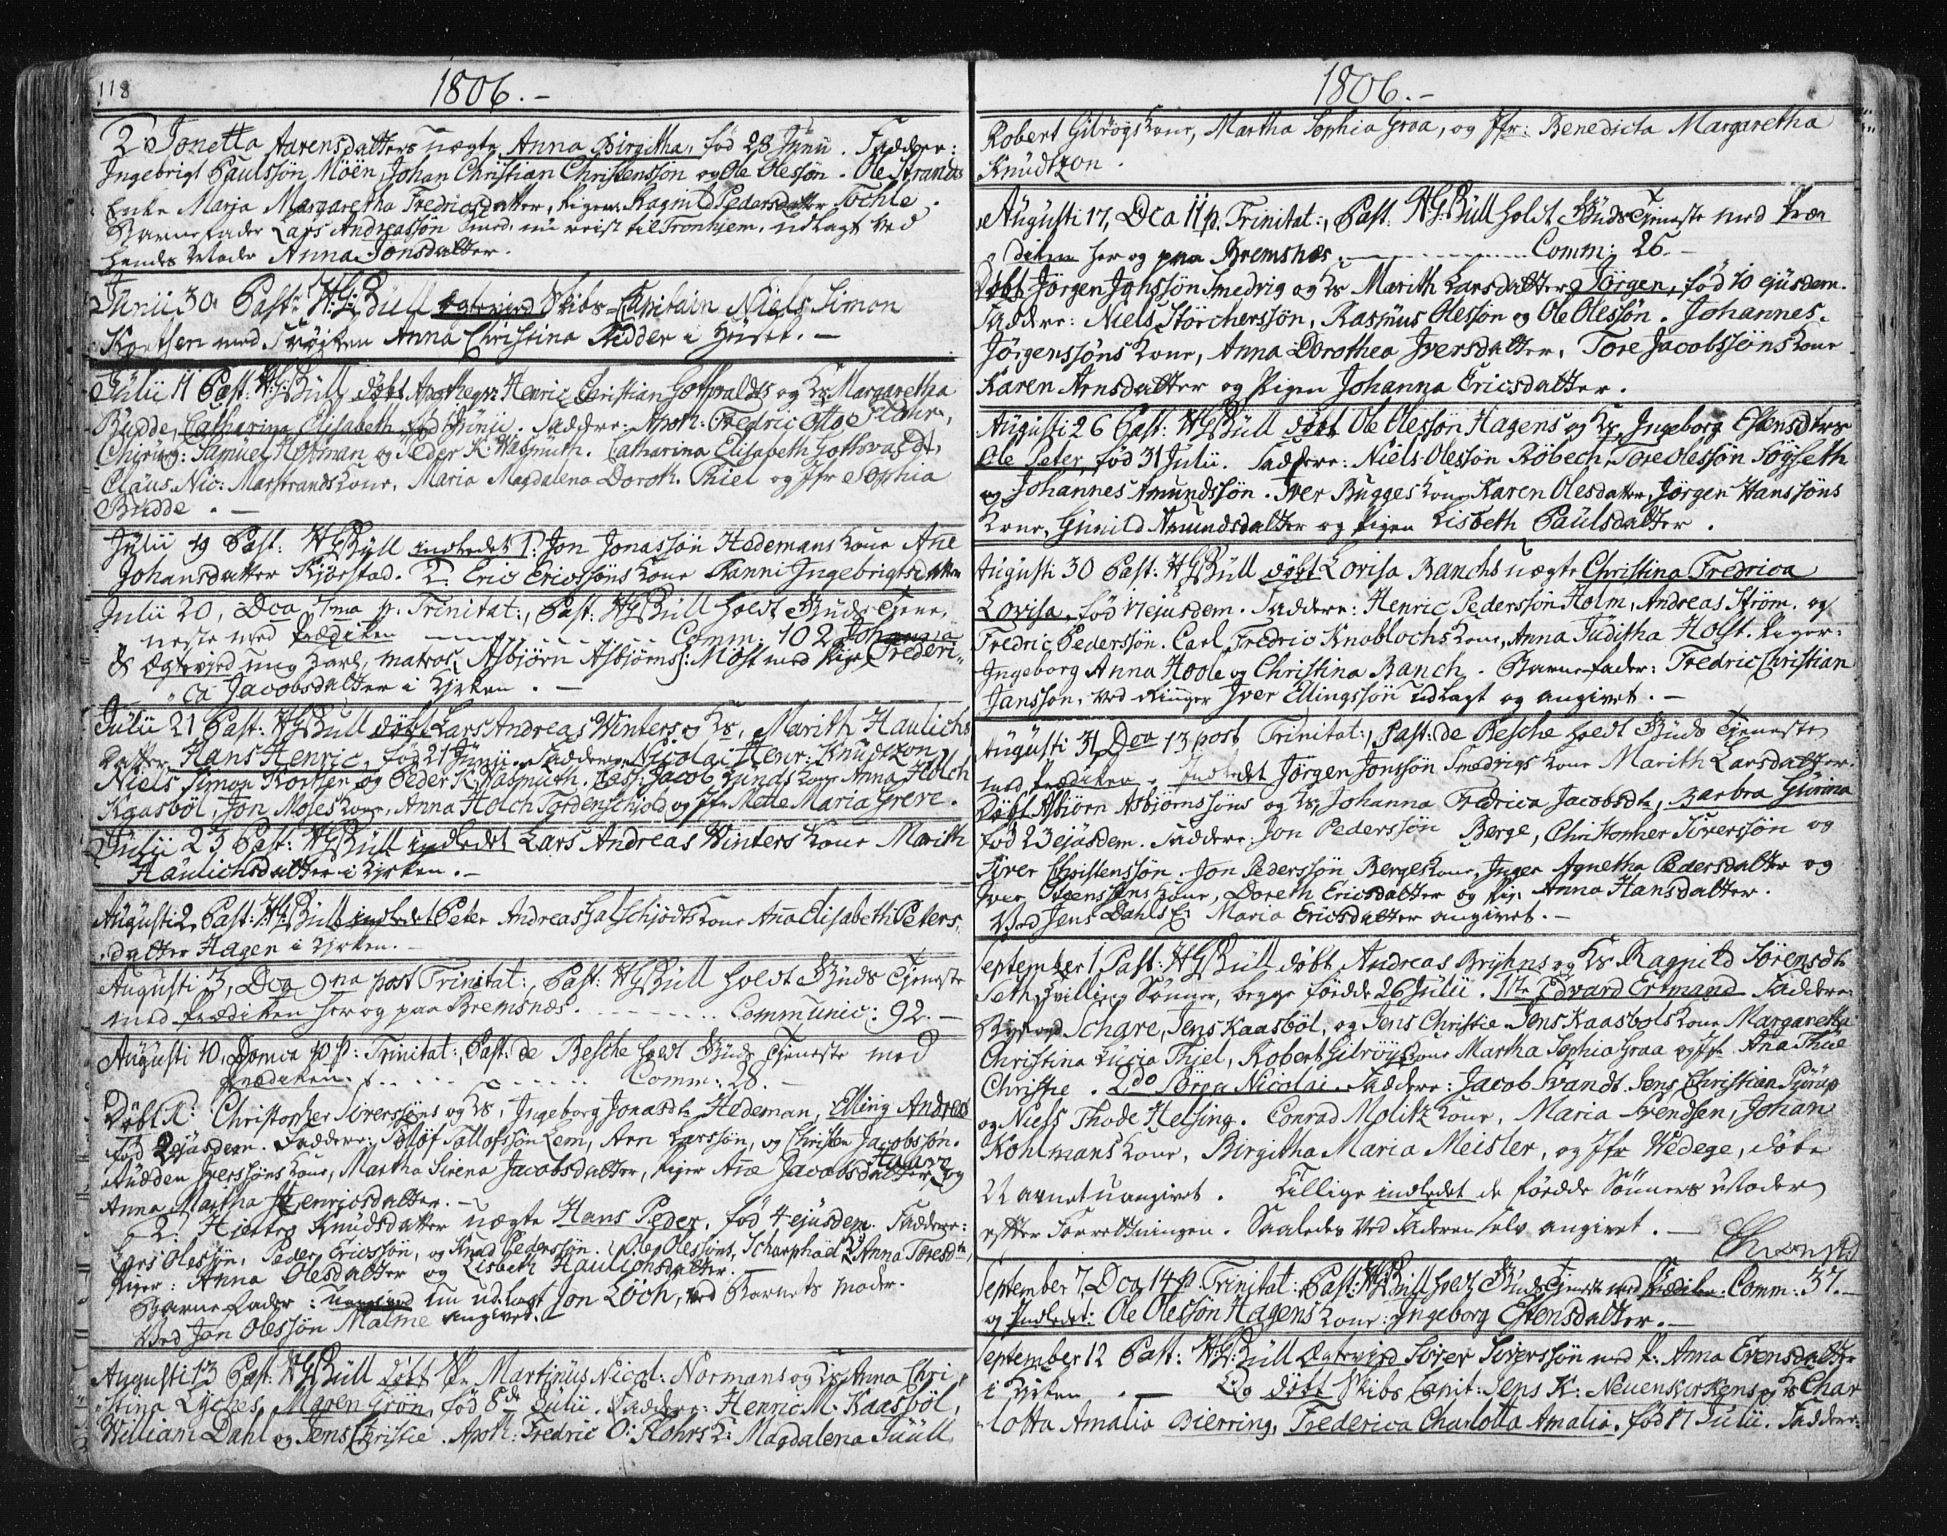 118
1806.-
2. Jonetta Aarensdatters uægte Anna Birgitha, fød 28 Junii. Faddere:
Ingebrigt Paulssøn Möen, Johan Christian Christenssøn og Ole Olessøn. Ole Strands
Enke Maria Margaretha Fredricsdatter, Pigen Ragnild Pedersdatter Tochle.
Barnefader Lars Andreassøn smed, nu reist til Tronhiem. Udlagt ved
hendes Moder Anna Jonsdatter.
Junii 30 Past: H:G:Büll Egteviede Skibs-Capitain Niels Simon
Kortsen med Frøiken Anna Christina Ridder i Huset. -
Julii 11 Past: HG:Büll døbt Apotheqr: Henric Christian Gottwaldts og Hs Margaretha
Büdde, Catharina Elisabeth, fød Junii. Faddere: Apoth: Fredric Otto Flohr,
Chirurg: Samuel Hoffman og Peder K. Wasmuth. Catharina Elisabeth Gottwaldt,
Claus Nic: Marstrands Kone, Maria Magdalena Doroth. Thiel og Jfr Sophia
Budde. -
Julii 19 Past: HGBüll indledet 1. Jon Jonassøn Hedemans Kone Ane
Johansdatter Kjørstad. 2. Eric Ericssøns Kone Fanni Ingebrigtsdatter
Julii 20, Dca 7ma p. Trinitat:, Past: HGBüll holdt Guds Tjene,
neste med Prædiken ---- Comm: 102. Johanna
& Egteviede ung Karl, matros, Asbjørn Asbjørns: Møst med Pige Frederi-
ca Jacobsdatter i Kirken. -
Julii 21 Past: HGBüll døbt Lars Andreas Winters og Hs, Marith Haulichs
datter Hans Henric, fød 21 Junii. Faddere Nicolai Henr: Knudtzon,
Niels Simon Kortsen og Peder K. Wasmuth. Pass: Jacob Lunds Kone Anna Holch
Kaasbøl, Jon Moses Kone, Anna Holch Tordenschiold og Jfr Mette Maria Greve.
Julii 23 Past: HGBüll indledet Lars Andreas Winters Kone Marith
Haulichsdatter i Kirken. -
Augusti 2, Past: HGBüll indledet Peter Andreas Galschjødts Kone Ana Elisabeth Peters,
datter Hagen i Kirken. -
Augusti 3, Dca 9na post Trinitat:, Past: HGBüll holdt Guds Tjeneste
med Prædiken her og paa Bremsnæs. ---- Communic: 92. -
Augusti 10, Domca 10 p: Trinitat: Past: de Besche holdt Guds Tjeneste med
Prædiken. ---- Comm: 28. -
Døbt 1: Christopher Siverssøns og Hs, Ingeborg Jonasdt Hedeman, Elling Andreas
fød 2 ejusdem. Faddere: Tolløf Tollofssøn Lem, Arn Larssøn, og Christen Jacobssøn.
Audden Iverssøns Kone, Martha Sirena Jacobsdatter, Piger Ane Jacobsdatter Hagave og
Anna Martha Henricsdatter. -
2. Knudsdatter uægte Hans Peder, fød 4 ejusdem. Faddere:
Lars Olessøn, Peder Ericssøn, og Knud Pederssøn. Ole Olessøns, Scharphael K: Anna Toresdtr,
Piger: Anna Olesdatter og Lisbeth Haulichsdatter. -
Barnefader: ungkarl udlagt Jon Löch, ved Barnets moder.
Ved Jon Olessøn Malme angivet. -
Augusti 13 Past: HGBüll døbt Martinus Nicol: Normans og Hs Anna Chri
stina Lyches, Maren Grøn, fød 8de Julii. Faddere: Henric M. Kaasbøl,
William Dahl og Jens Christie. Apoth: Fredric O: Flohrs K: Magdalena Juull
1806.-
Robert Gilrøys Kone, Martha Sophia Graa, og Jfr: Benedicta Margaretha
Knudtzon.
Augusti 17, Dca 11 p. Trinitat:, Past: HGBüll holdt Guds Tjeneste med Præ
diken her og paa Bremsnæs. ---- Comm: 26. -
Døbt Jørgen Jonssøn Smedrig og Hs Marith Larsdatter Jørgen, fød 10 ejusdem.
Faddere: Niels Storcherssøn, Rasmus Olessøn og Ole Olessøn. Johannes
Jørgenssøns Kone, Anna Dorothea Iversdatter, Tore Jacobssøns Kone
Karen Arnsdatter og Pigen Johanna Ericsdatter.
Augusti 26 Past: HGBüll døbt Ole Olessøn Hagens og Hs, Ingeborg Estensdtrs
Ole Peter, fød 31 Julii. Faddere: Niels Olessøn Røbech, Tore Olessøn Søgseth
og Johannes Amundssøn. Iver Bugges Kone Karen Olesdatter, Jørgen Hanssøns
Kone, Gunild Amundsdatter og Pigen Lisbeth Paulsdatter.
Augusti 30 Past: HGBüll døbt Lovisa Ranchs uægte Christina Fredrica
Lovisa, fød 17 ejusdem. Faddere: Henric Pederssøn Holm, Andreas Strøm. og
Fredric Pederssøn. Carl Fredric Knoblochs Kone, Anna Juditha Holst. Piger:
Ingeborg Anna Hoole og Christina Ranch. Barnefader: Fredric Christian
Janssøn, ved Ringer Iver Ellingssøn udlagt og angivet. -
Augusti 31, Dca 13 post Trinitat:, Past: de Besche holdt Guds Tjeneste
med Prædiken. Indledet Jørgen Jonssøn Smedrigs Kone Marith Larsdatter.
Døbt Asbjørn Asbjørnssøns og Hs, Johanna Fredrica Jacobsdtr, Barbra Gurina
fød 23 ejusdem. Faddere: Jon Pederssøn Berge, Christopher Siverssøn og
Iver Christenssøn. Jon Pederssøn Berges Kone, Inger Agnetha Pedersdatter og
Iver Steenssøns Kone, Doreth Ericsdatter og Pig. Anna Hansdatter.
Ved Jens Dahls E: Maria Ericsdatter angivet. -
September 1 Past: HGBüll døbt Andreas Bryhns og Hs Ragnild Sørensdtr
Seth, tvilling Sønner, begge fødde 26 Julii. 1te Edvard Ertmand Faddere:
Schare, Jens Kaasbøl, og Jens Christie. Jens Kaasbøls Kone Margaretha
Christina Lucia Thiel, Robert Gilrøys Kone Martha Sophia Graa og Jfr Ana Thue
Christie. 2do Søren Nicolai. Faddere: Jacob Svandt, Jens Christian Syrup
og Niels Thode Helsing. Conrad Molitz Kone, Maria Svendsen, Johan
Kohlmans Kone, Birgitha Maria Meisler, og Jfr Wedege, døbe
Navnet uangivet. Tillige indledet de fødde Sønners Moder
efter Forretningen. Saaledes ved Faderen selv angivet. -
September 7, Dca 14 p. Trinitat: Past: HGBüll holdt Guds Tjeneste med Prædiken. Comm: 37. -
og Indledet: Ole Olessøn Hagens Kone: Ingeborg Estensdatter. -
September 12 Past: HGBüll Egteviede Sører Sørerssøn med P: Anna Evensdatter
i Kirken. - Og døbt Skibs Capit: Jens K: Neuenkirkens og Hs Char
lotta Amalia Bierring, Frederica Charlotta Amalia, fød 17 Julii. Faddere: